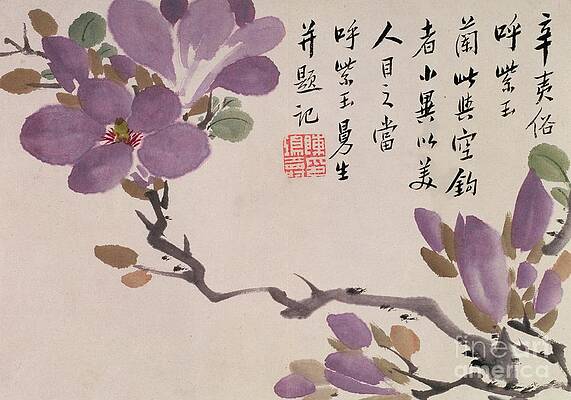 辛夷俗
呼紫玉
蘭此與空鈎
者小異以美
人目之當
呼紫玉曼生
并題記
fine art
america